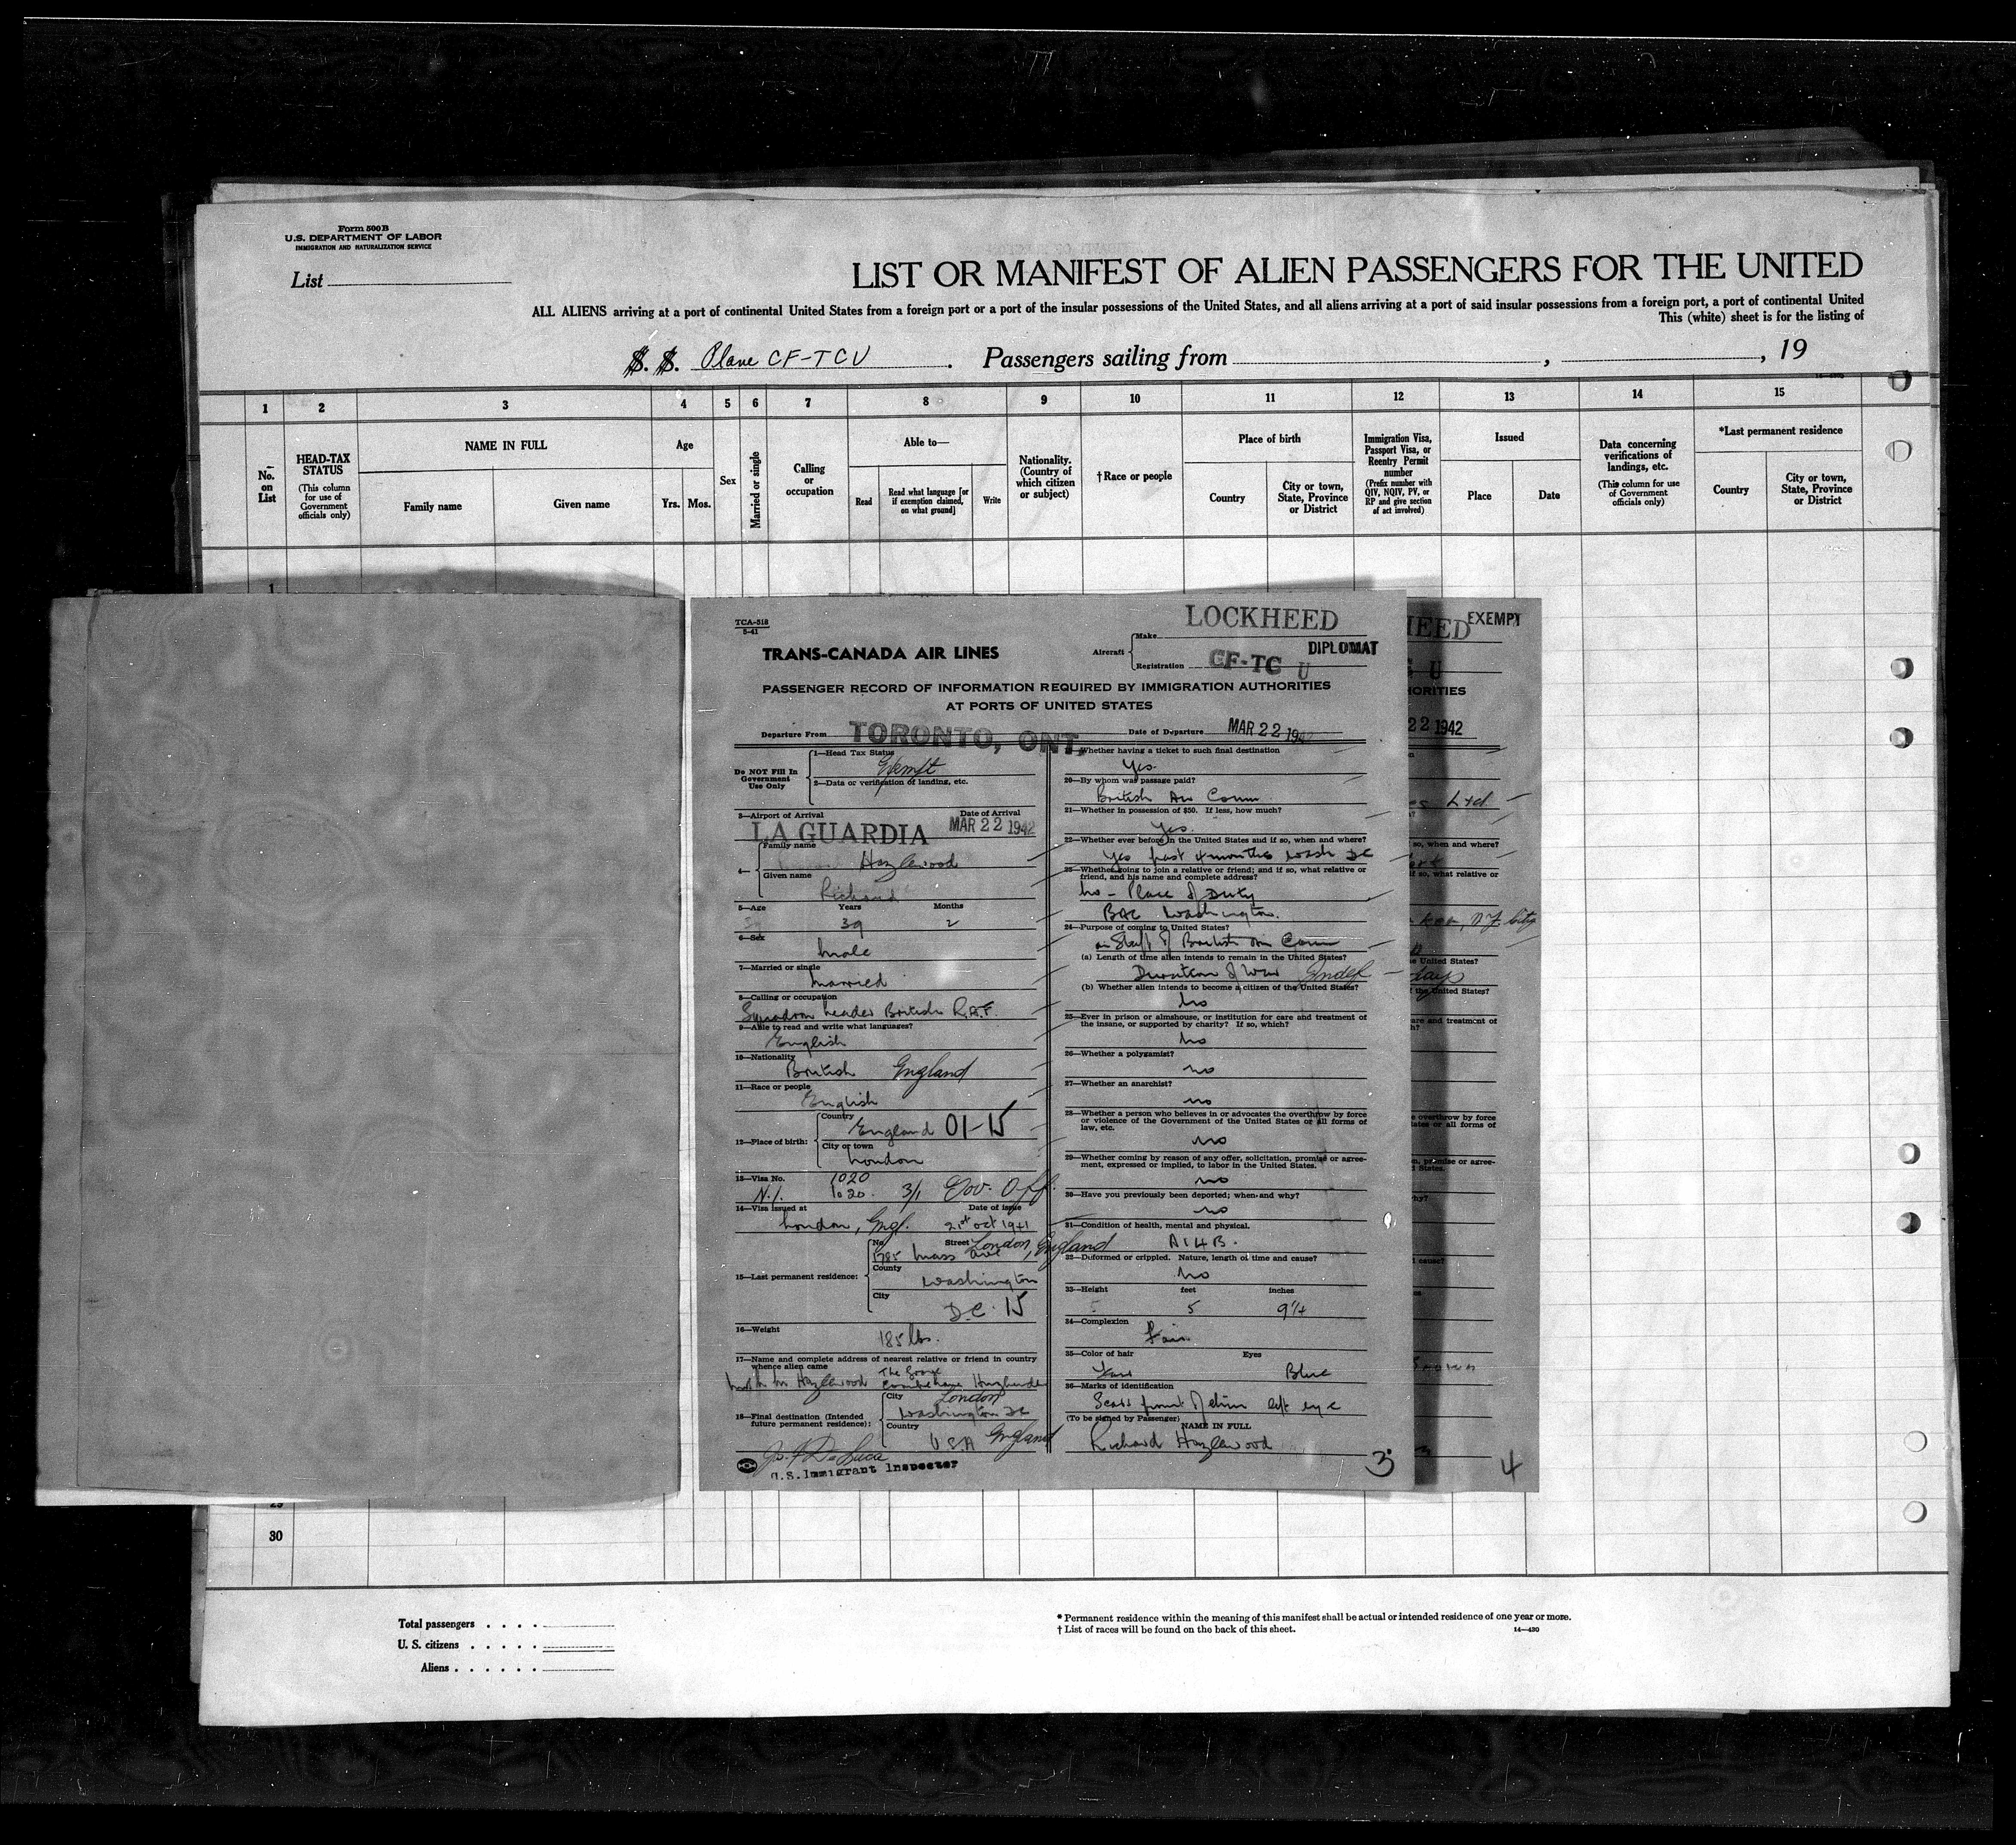 Form 500B
U.S. DEPARTMENT OF LABOR
IMMIGRATION AND NATURALIZATION SERVICE
List
LIST OR MANIFEST OF ALIEN PASSENGERS FOR THE UNITED
ALL ALIENS arriving at a port of continental United States from a foreign port or a port of the insular possessions of the United States, and all aliens arriving at a port of said insular possessions from a foreign port, a port of continental United
This (white) sheet is for the listing of
S. S. Plane CF-TCU. Passengers sailing from , , 19
1 2 3 4 5 6 7 8 9 10 11 12 13 14 15
No. on List
HEAD-TAX STATUS
(This column for use of Government officials only)
NAME IN FULL
Family name
Given name
Age
Yrs. Mos.
Sex
Married or single
Calling or occupation
Able to—
Read
Read what language [or if exemption claimed, on what ground]
Write
Nationality. (Country of which citizen or subject)
†Race or people
Place of birth
Country
City or town, State, Province or District
Immigration Visa, Passport Visa, or Reentry Permit number
(Prefix number with QIV, NQIV, PV, or RP and give section of act involved)
Issued
Place
Date
Data concerning verifications of landings, etc.
(This column for use of Government officials only)
*Last permanent residence
Country
City or town, State, Province or District
1
TCA-518
5-41
TRANS-CANADA AIR LINES
Aircraft
Make LOCKHEED
DIPLOMAT
Registration CF-TC U
PASSENGER RECORD OF INFORMATION REQUIRED BY IMMIGRATION AUTHORITIES
AT PORTS OF UNITED STATES
Departure From TORONTO, ONT.
Date of Departure MAR 22 1942
Do NOT Fill In Government Use Only
1—Head Tax Status
Exempt
2—Data or verification of landing, etc.
3—Airport of Arrival
Date of Arrival
LA GUARDIA MAR 22 1942
4—
Family name
Hazlewood
Given name
Richard
5—Age Years Months
39 2
6—Sex
Male
7—Married or single
Married
8—Calling or occupation
Squadron Leader British R.A.F.
9—Able to read and write what languages?
English
10—Nationality
British England
11—Race or people
English
12—Place of birth:
Country
England 01-15
City or town
London
13—Visa No. 1020
N.I. 1020. 3/1 Gov. Off.
14—Visa issued at Date of issue
London, Engl. 21st Oct 1941
15—Last permanent residence:
No. Street London, England
1785 Mass Ave
County
Washington
City
D.C. 15
16—Weight
185 lbs.
17—Name and complete address of nearest relative or friend in country whence alien came
The Grove
Hazlewood
18—Final destination (Intended future permanent residence):
City London
Washington DC
Country
U.S.A England
U.S. Immigrant Inspector
Whether having a ticket to such final destination
Yes.
20—By whom was passage paid?
British Air Comm
21—Whether in possession of $50. If less, how much?
Yes.
22—Whether ever before in the United States and if so, when and where?
Yes past 4 months Wash DC
23—Whether going to join a relative or friend; and if so, what relative or friend, and his name and complete address?
No - Place of Duty
BAC Washington.
24—Purpose of coming to United States?
on Staff of British Air Comm
(a) Length of time alien intends to remain in the United States?
Duration of War Indef
(b) Whether alien intends to become a citizen of the United States?
No
25—Ever in prison or almshouse, or institution for care and treatment of the insane, or supported by charity? If so, which?
No
26—Whether a polygamist?
no
27—Whether an anarchist?
no
28—Whether a person who believes in or advocates the overthrow by force or violence of the Government of the United States or all forms of law, etc.
no
29—Whether coming by reason of any offer, solicitation, promise or agreement, expressed or implied, to labor in the United States.
no
30—Have you previously been deported; when and why?
no
31—Condition of health, mental and physical.
A14B.
32—Deformed or crippled. Nature, length of time and cause?
No
33—Height feet inches
5 9¼
34—Complexion
Fair
35—Color of hair Eyes
Fair Blue
36—Marks of identification
Scars left eye
(To be signed by Passenger) NAME IN FULL
Richard Hazlewood
3
EXEMPT
HEED
U
HORITIES
22 1942
Ltd
so, when and where?
if so, what relative or
N.Y. City
e United States?
days
f the United States?
are and treatment of
e overthrow by force
ates or all forms of
promise or agree-
d States.
hy?
cause?
4
29
30
Total passengers
U. S. citizens
Aliens
* Permanent residence within the meaning of this manifest shall be actual or intended residence of one year or more.
† List of races will be found on the back of this sheet.
14—430